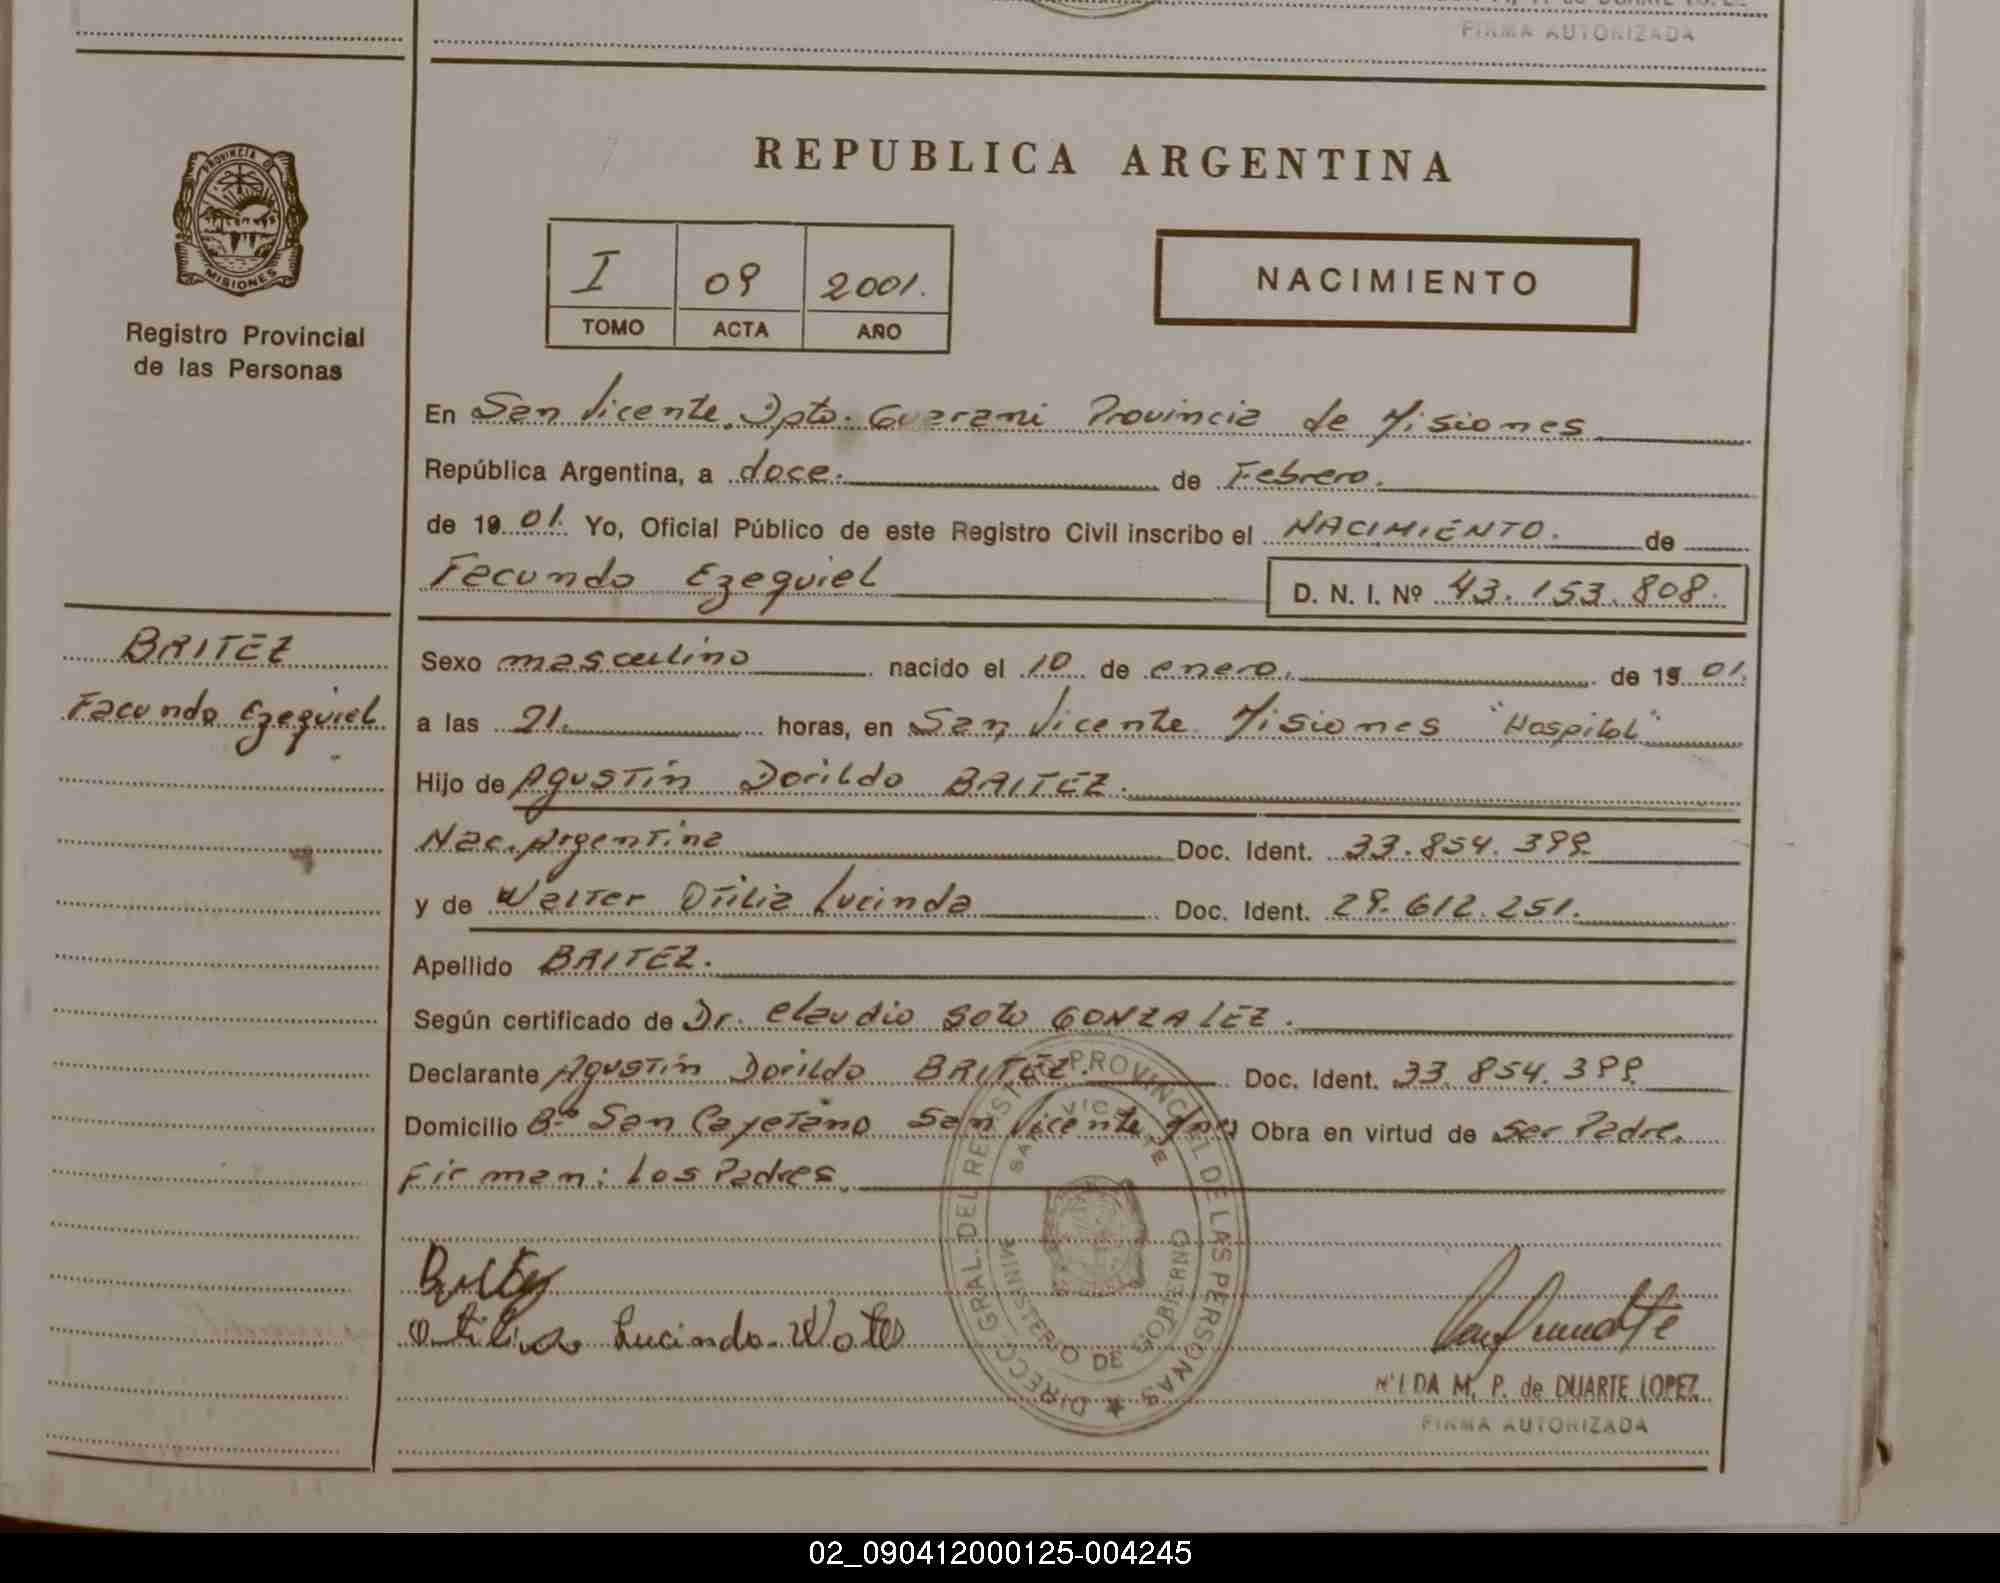 FIRMA AUTORIZADA
PROVINCIA DE
MISIONES
Registro Provincial
de las Personas
REPUBLICA ARGENTINA
I 09 2001.
TOMO ACTA AÑO
NACIMIENTO
En San Vicente Dpto. Guarani Provincia de Misiones
República Argentina, a doce. de Febrero.
de 19 01. Yo, Oficial Público de este Registro Civil inscribo el NACIMIENTO. de
Facundo Ezequiel D. N. I. Nº 43.153.808.
BRITEZ
Facundo Ezequiel
Sexo masculino nacido el 10 de enero. de 19 01.
a las 21. horas, en San Vicente Misiones "Hospital"
Hijo de Agustín Dorildo BRITEZ.
Nac. Argentina Doc. Ident. 33.854.399
y de Walter Otilia Lucinda Doc. Ident. 29.612.251.
Apellido BRITEZ.
Según certificado de Dr. Claudio Soto GONZALEZ.
Declarante Agustín Dorildo BRITEZ. Doc. Ident. 33.854.399
Domicilio Bº San Cayetano San Vicente Mnes Obra en virtud de Ser Padre.
Firman: Los Padres.
DIRECC. GRAL. DEL REGIST. PROVINCIAL DE LAS PERSONAS
SAN VICENTE
MINISTERIO DE GOBIERNO
Britez
Otilia Lucinda Walter
NILDA M. P. de DUARTE LOPEZ
FIRMA AUTORIZADA
02_090412000125-004245